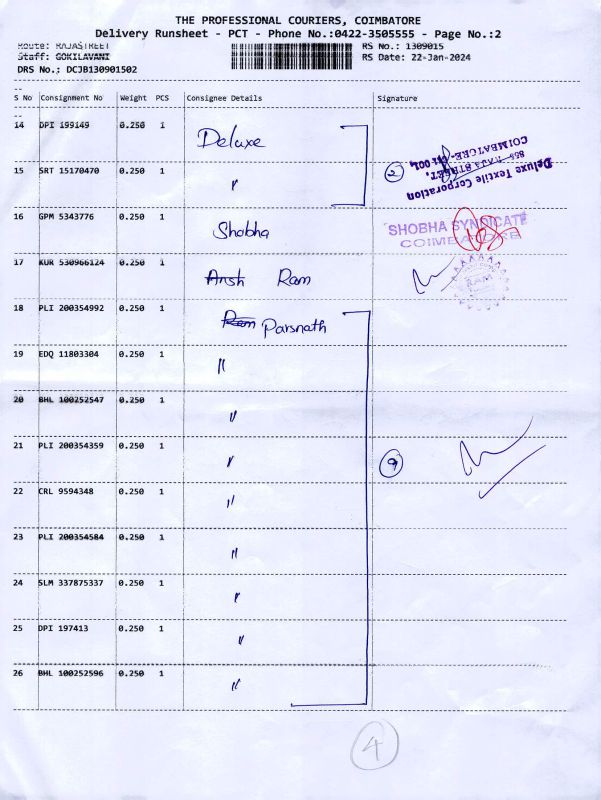 THE PROFESSIONAL COURIERS, COIMBATORE
Delivery Runsheet - PCT - Phone No.:0422-3505555 - Page No.:2
Route: RAJASTREET
RS No.: 1309015
Staff: GOKILAVANI
RS Date: 22-Jan-2024
DRS No.: DCJB130901502
S No Consignment No Weight PCS Consignee Details Signature
14 DPI 199149 0.250 1 Deluxe
Deluxe Textile Corporation
RAJA STREET,
COIMBATORE - 641 001.
15 SRT 15170470 0.250 1 " 2
16 GPM 5343776 0.250 1 Shobha
SHOBHA SYNDICATE
COIMBATORE
17 KUR 530966124 0.250 1 Ansh Ram
RAM
18 PLI 200354992 0.250 1 Ram Parsnath
19 EDQ 11803304 0.250 1 "
20 BHL 100252547 0.250 1 "
21 PLI 200354359 0.250 1 " 9
22 CRL 9594348 0.250 1 "
23 PLI 200354584 0.250 1 "
24 SLM 337875337 0.250 1 "
25 DPI 197413 0.250 1 "
26 BHL 100252596 0.250 1 "
4